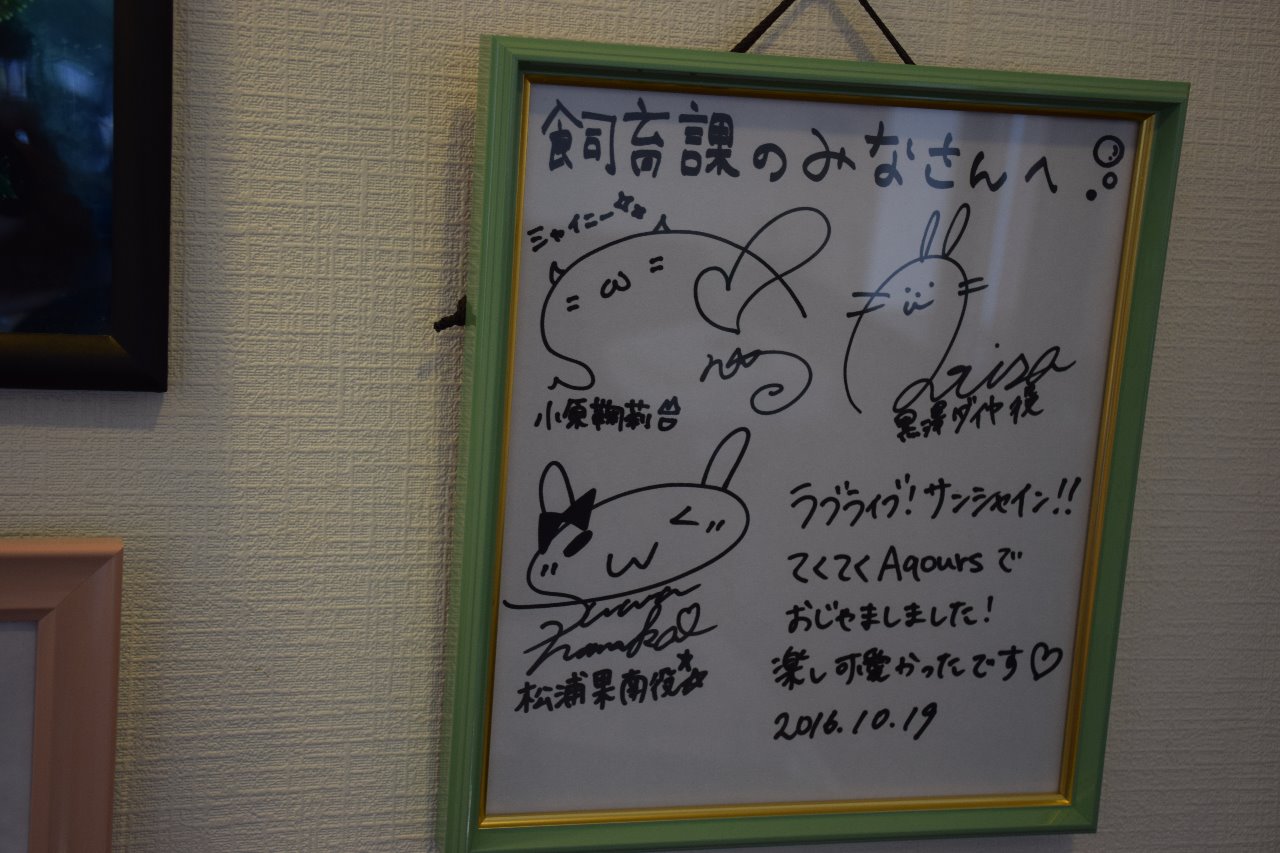 飼育課のみなさんへ
シャイニー
小原鞠莉
aisa
黒澤ダイヤ役
Suwa
Nanaka
松浦果南役
ラブライブ！サンシャイン!!
てくてくAqoursで
おじゃましました！
楽し可愛かったです♡
2016.10.19